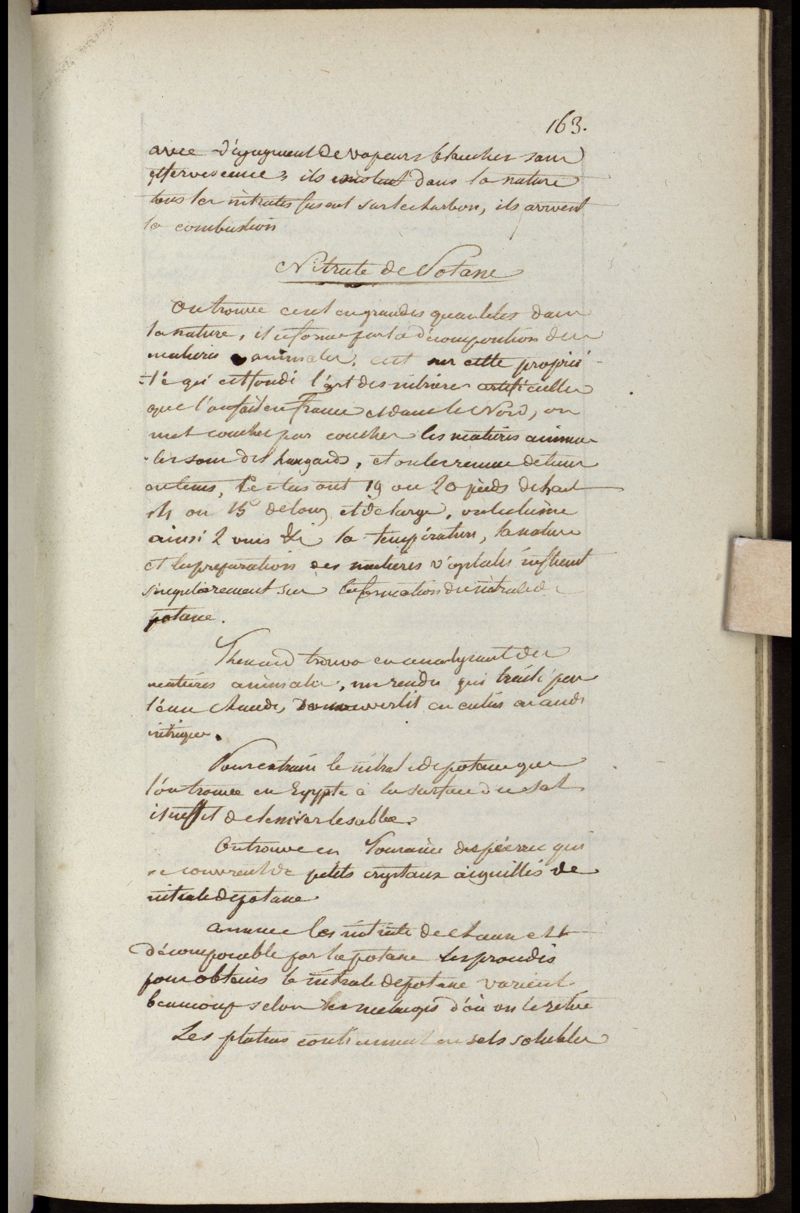 163.
avec dégagement de vapeurs blanches sans
effervescence, ils existent dans la nature
tous les nitrates fusent sur le charbon, ils avivent
la combustion
Nitrate de Potasse
On trouve ce sel en grandes quantités dans
la nature, il se forme par la décomposition des
matieres animales, c'est sur cette proprié-
-té qu'est fondé l'art des nitrières artificielles
que l'on fait en France et dans le Nord, on
met couches par couches les matieres anima-
-les sous des hangards, et on les remue de tems
en tems, les tas ont 19 ou 20 pieds de haut
14 ou 15 de long et de large, on le laisse
ainsi 2 ans la température, la nature
et les préparations des matieres végétales influent
singulièrement sur la formation du nitrate de
potasse.
Thenard trouva en analysant des
matieres animales, un résidu qui traité par
l'eau chaude, se convertit en
nitrique.
Pour extraire le nitrate de potasse que
l'on trouve en Egypte à la surface du sol
il suffit de lessiver le sable.
On trouve en Touraine des pierres qui
se couvrent de petits crystaux aiguillés de
nitrate de potasse
comme les nitrate de chaux est
décomposable par la potasse les procédés
pour obtenir le nitrate de potasse varient
beaucoup selon les mélanges d'où on le retire
Les platras contiennent en sels solubles